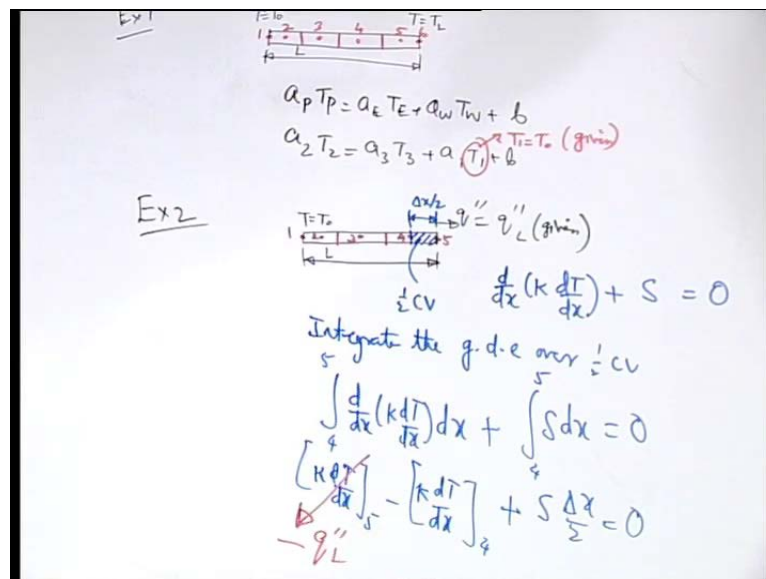 Ex 1
T=T₀ T=T_L
1 2 3 4 5 6
L
a_P T_P = a_E T_E + a_W T_W + b
a_2 T_2 = a_3 T_3 + a_1 T_1 + b → T_1 = T_0 (given)
Ex 2
Δx/2
T=T₀ q'' = q''_L (given)
1 2 3 4 5
L
½ CV d/dx (K dT/dx) + S = 0
Integrate the g.d.e over ½ CV
∫_4^5 d/dx (K dT/dx) dx + ∫_4^5 S dx = 0
[K dT/dx]_5 - [K dT/dx]_4 + S Δx/2 = 0
- q''_L